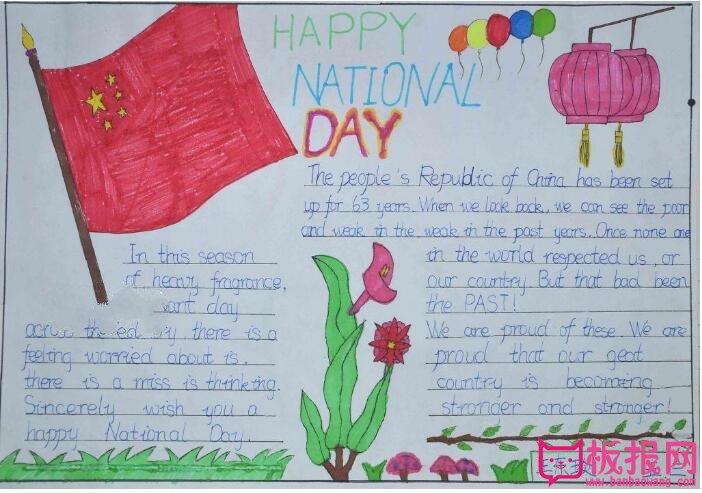 HAPPY
NATIONAL
DAY
The people's Republic of China has been set
up for 63 years. When we look back, we can see the poor
and weak in the weak in the past years. Once none one
in the world respected us, or
our country. But that bad been
the PAST!
We are proud of these. We are
proud that our geat
country is becoming
stronger and stronger!
In this season
of heavy fragrance,
day
there is a
feeling worried about is,
there is a miss is thinking.
Sincerely wish you a
happy National Day.
板报网
www.banbaowang.com